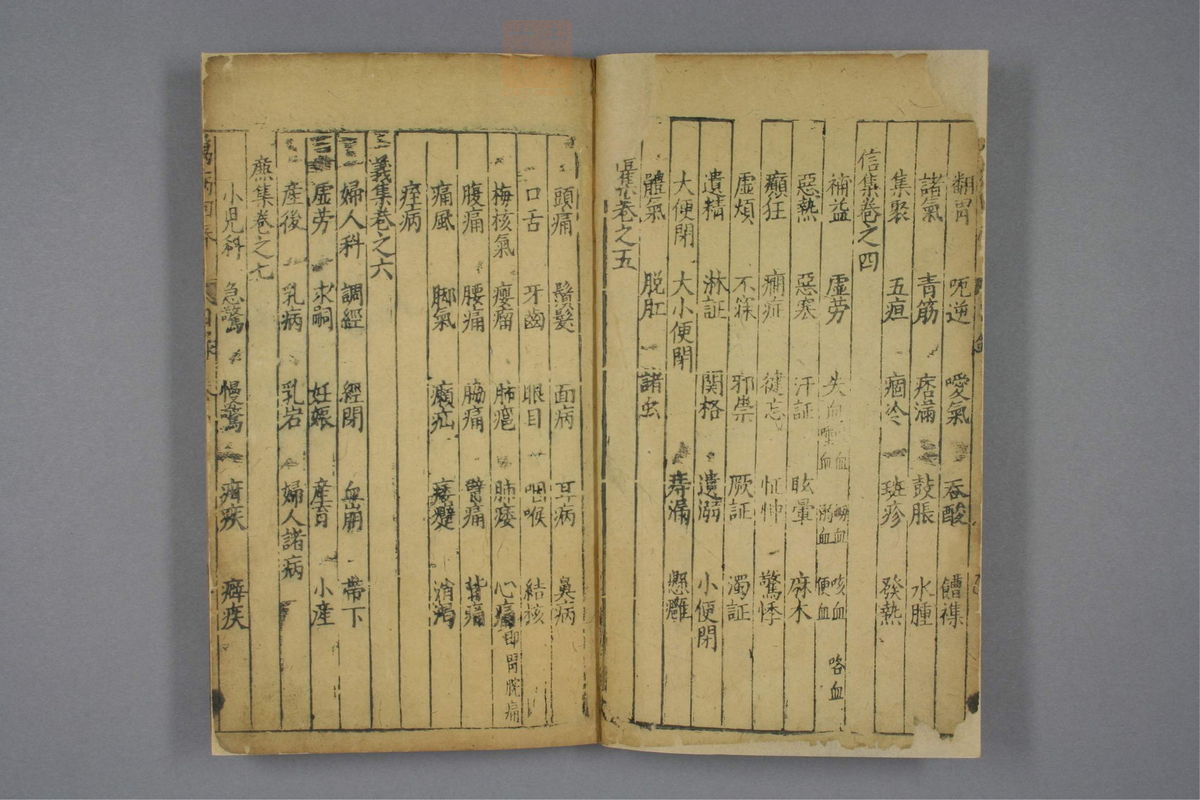 翻胃 呃逆 噯氣 吞酸 饐襍
諸氣 青筋 痞滿 鼓脹 水腫
集聚 五疸 痼冷 斑疹 發熱
信集卷之四
補益 虛勞 失血 衂血 咳血 咯血 便血
惡熱 惡寒 汗証 眩暈 麻木
癲狂 癇症 健忘 怔忡 驚悸
虛煩 不寐 邪祟 厥証 濁証
遺精 淋証 関格 遺溺 小便閉
大便閉 大小便閉 痔漏 懸癰
體氣 脱肛 諸虫
集卷之五
頭痛 鬚髮 面病 耳病 鼻病
口舌 牙齒 眼目 咽喉 結核
梅核氣 癭瘤 肺癰 肺痿 心痛即胃脘痛
腹痛 腰痛 脇痛 臂痛 背痛
痛風 脚氣 㿗疝 痿躄 消渴
痓病
義集卷之六
婦人科 調經 經閉 血崩 帶下
虛劳 求嗣 妊娠 產育 小產
產後 乳病 乳岩 婦人諸病
集卷之七
小児科 急驚 慢驚 疳疾 癖疾
萬病回春